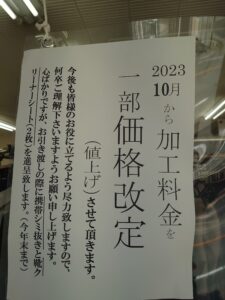 2023
10月から加工料金を
一部価格改定
(値上げ)させて頂きます。
今後も皆様のお役に立てるよう尽力致しますので、
何卒ご理解下さいますようお願い申し上げます。
心ばかりですが、お引き渡しの際に携帯シミ抜きと靴ク
リーナーシート(2枚)を進呈致します。(今年末まで)